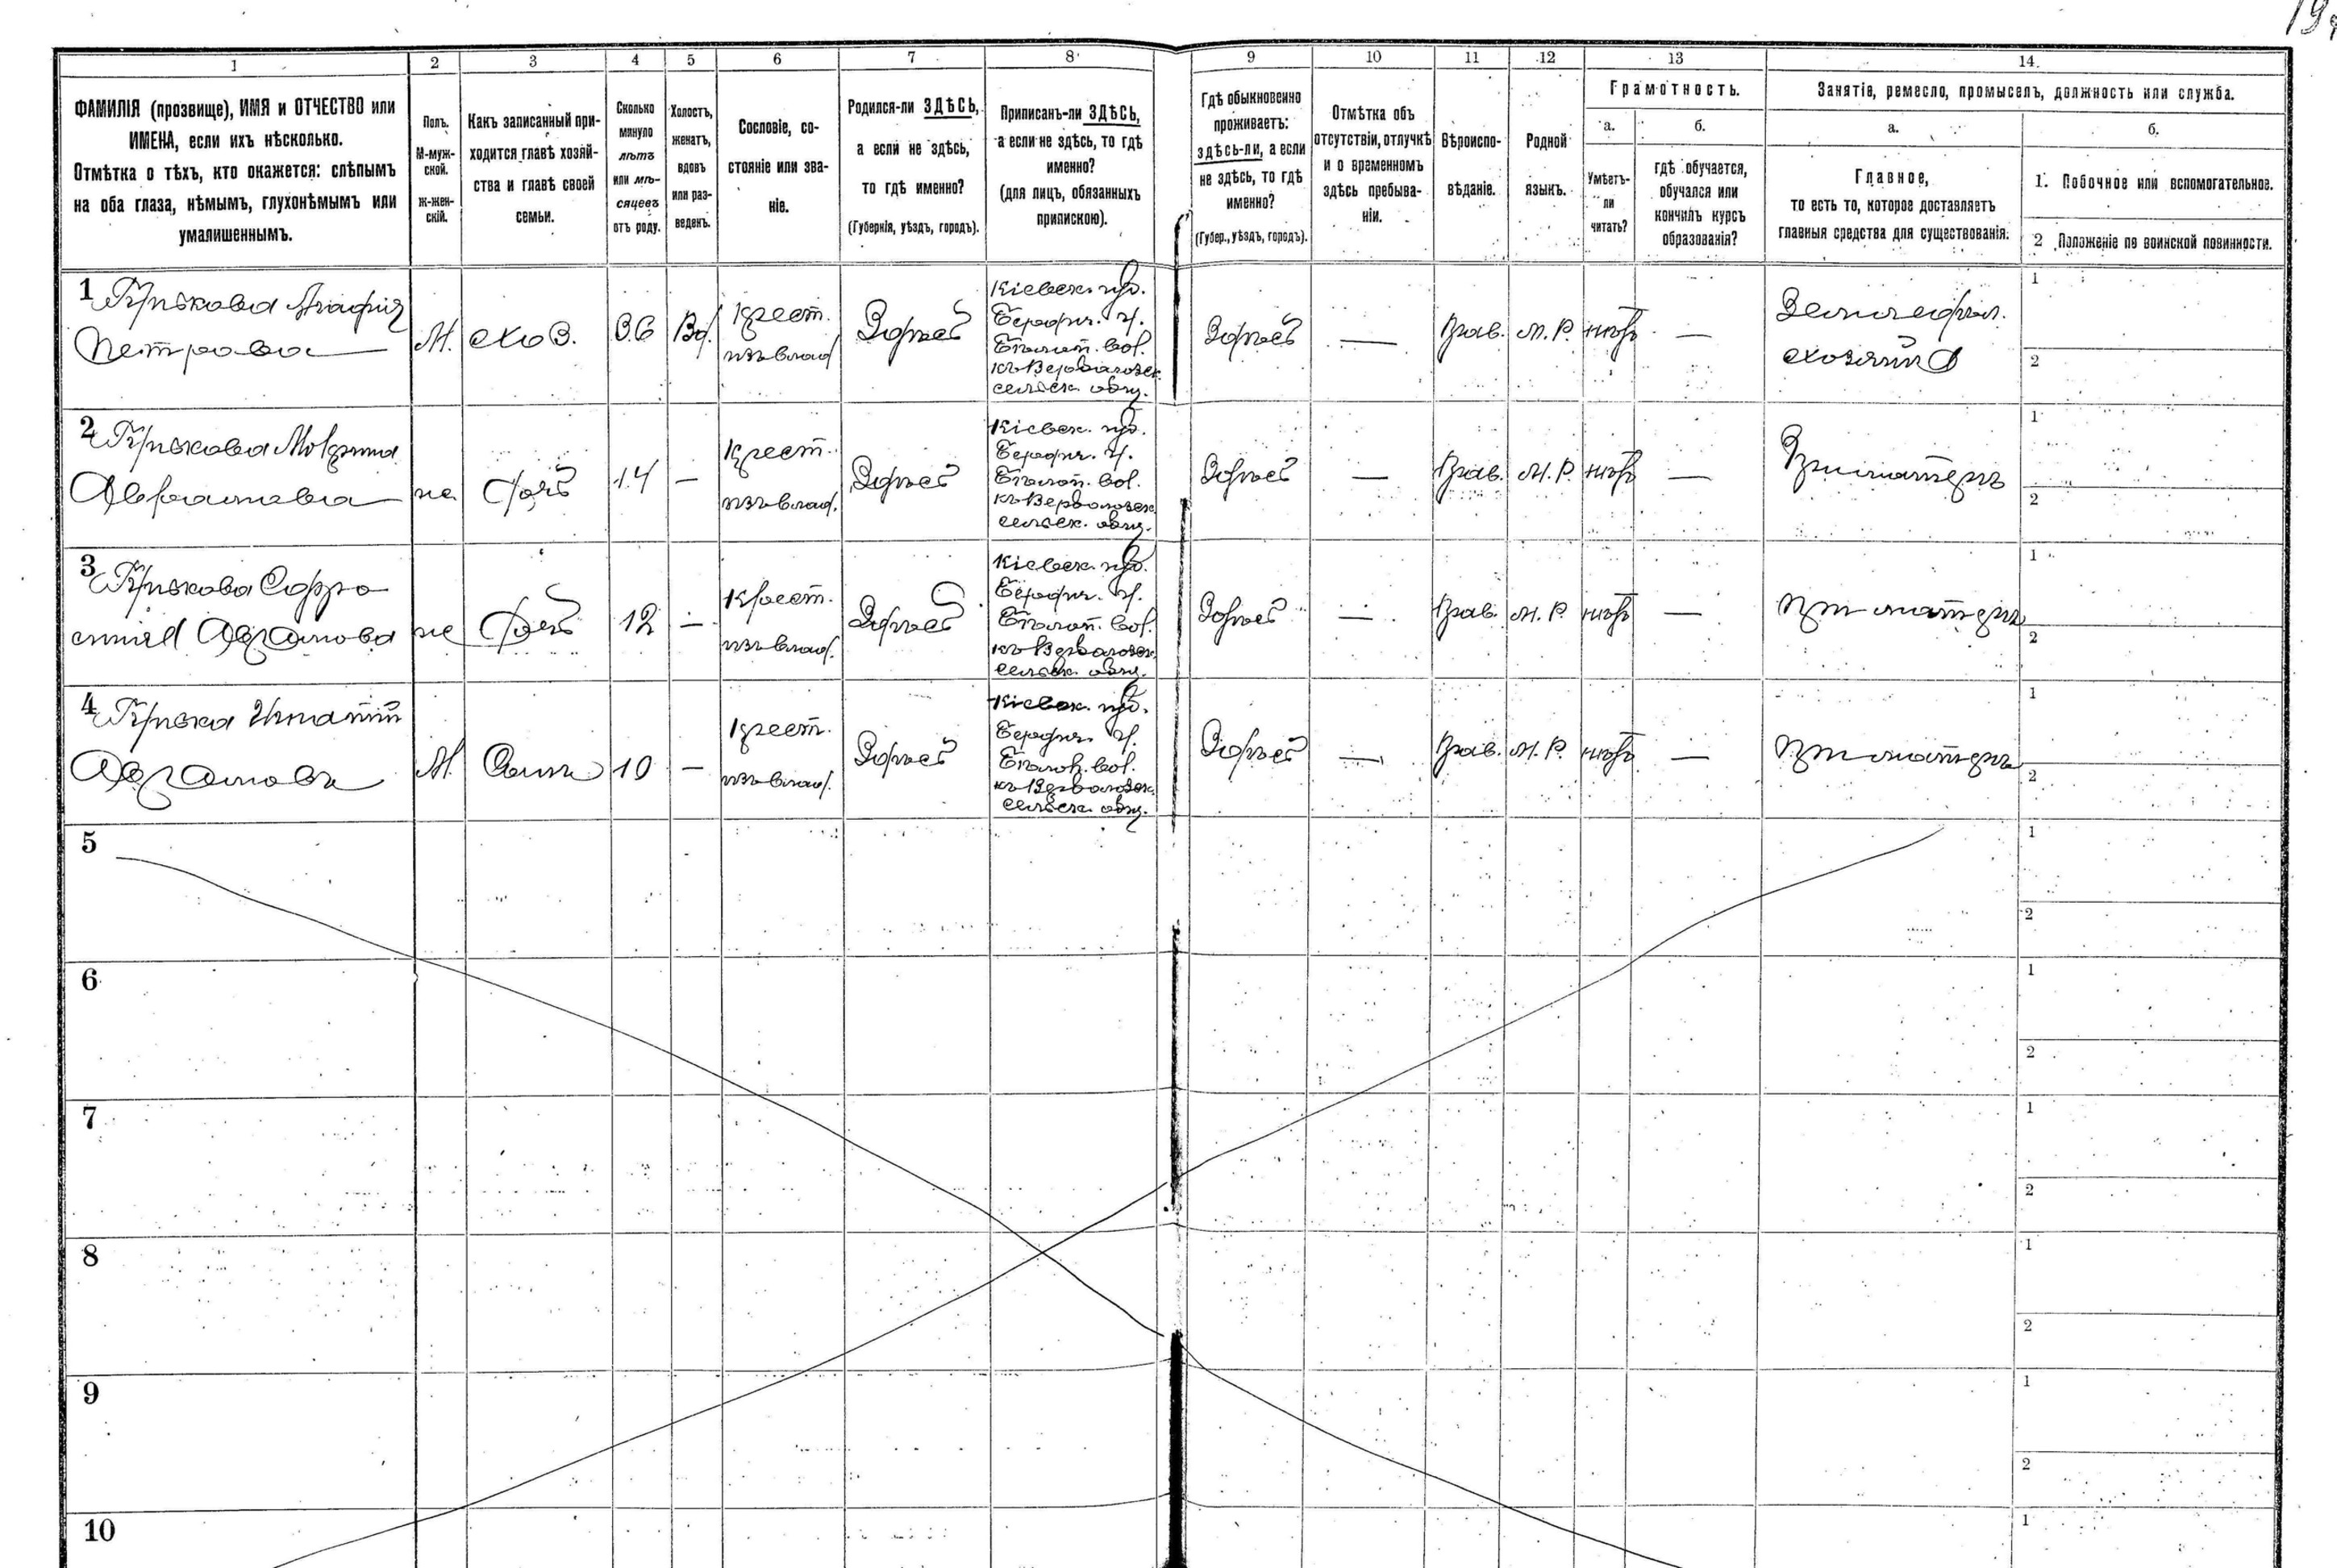 19
1 2 3 4 5 6 7 8 9 10 11 12 13 14
ФАМИЛІЯ (прозвище), ИМЯ и ОТЧЕСТВО или
ИМЕНА, если ихъ нѣсколько.
Отмѣтка о тѣхъ, кто окажется: слѣпымъ
на оба глаза, нѣмымъ, глухонѣмымъ или
умалишеннымъ.
Полъ.
М-муж-
ской.
ж-жен-
скій.
Какъ записанный при-
ходится главѣ хозяй-
ства и главѣ своей
семьи.
Сколько
минуло
лѣтъ
или мѣ-
сяцевъ
отъ роду.
Холостъ,
женатъ,
вдовъ
или раз-
веденъ.
Сословіе, со-
стояніе или зва-
ніе.
Родился-ли ЗДѢСЬ,
а если не здѣсь,
то гдѣ именно?
(Губернія, уѣздъ, городъ).
Приписанъ-ли ЗДѢСЬ,
а если не здѣсь, то гдѣ
именно?
(для лицъ, обязанныхъ
припискою).
Гдѣ обыкновенно
проживаетъ:
здѣсь-ли, а если
не здѣсь, то гдѣ
именно?
(Губер., уѣздъ, городъ).
Отмѣтка объ
отсутствіи, отлучкѣ
и о временномъ
здѣсь пребыва-
ніи.
Вѣроиспо-
вѣданіе.
Родной
языкъ.
Грамотность.
а.
Умѣетъ-
ли
читать?
б.
гдѣ обучается,
обучался или
кончилъ курсъ
образованія?
Занятіе, ремесло, промыселъ, должность или служба.
а.
Главное,
то есть то, которое доставляетъ
главныя средства для существованія.
б.
1. Побочное или вспомогательное.
2 Положеніе по воинской повинности.
1
Петрова
М. хоз. 36 Вд.
Крест.
изъ влад.
Здѣсь
Кіевск. губ.
Бердич. у.
вол.
сельск. общ.
Здѣсь — Прав. М. Р. нѣтъ —
Земледѣл.
1
2
2
14 —
Крест.
изъ влад.
Здѣсь
Кіевск. губ.
Бердич. у.
вол.
сельск. общ.
Здѣсь — Прав. М. Р. нѣтъ —
При матери
1
2
3
Дочь 12 —
Крест.
изъ влад.
Здѣсь
Кіевск. губ.
Бердич. у.
вол.
сельск. общ.
Здѣсь — Прав. М. Р. нѣтъ —
при матери
1
2
4
М. Сынъ 10 —
Крест.
изъ влад.
Здѣсь
Кіевск. губ.
Бердич. у.
вол.
сельск. общ.
Здѣсь — Прав. М. Р. нѣтъ —
при матери
1
2
5
1
2
6
1
2
7
1
2
8
1
2
9
1
2
10
1